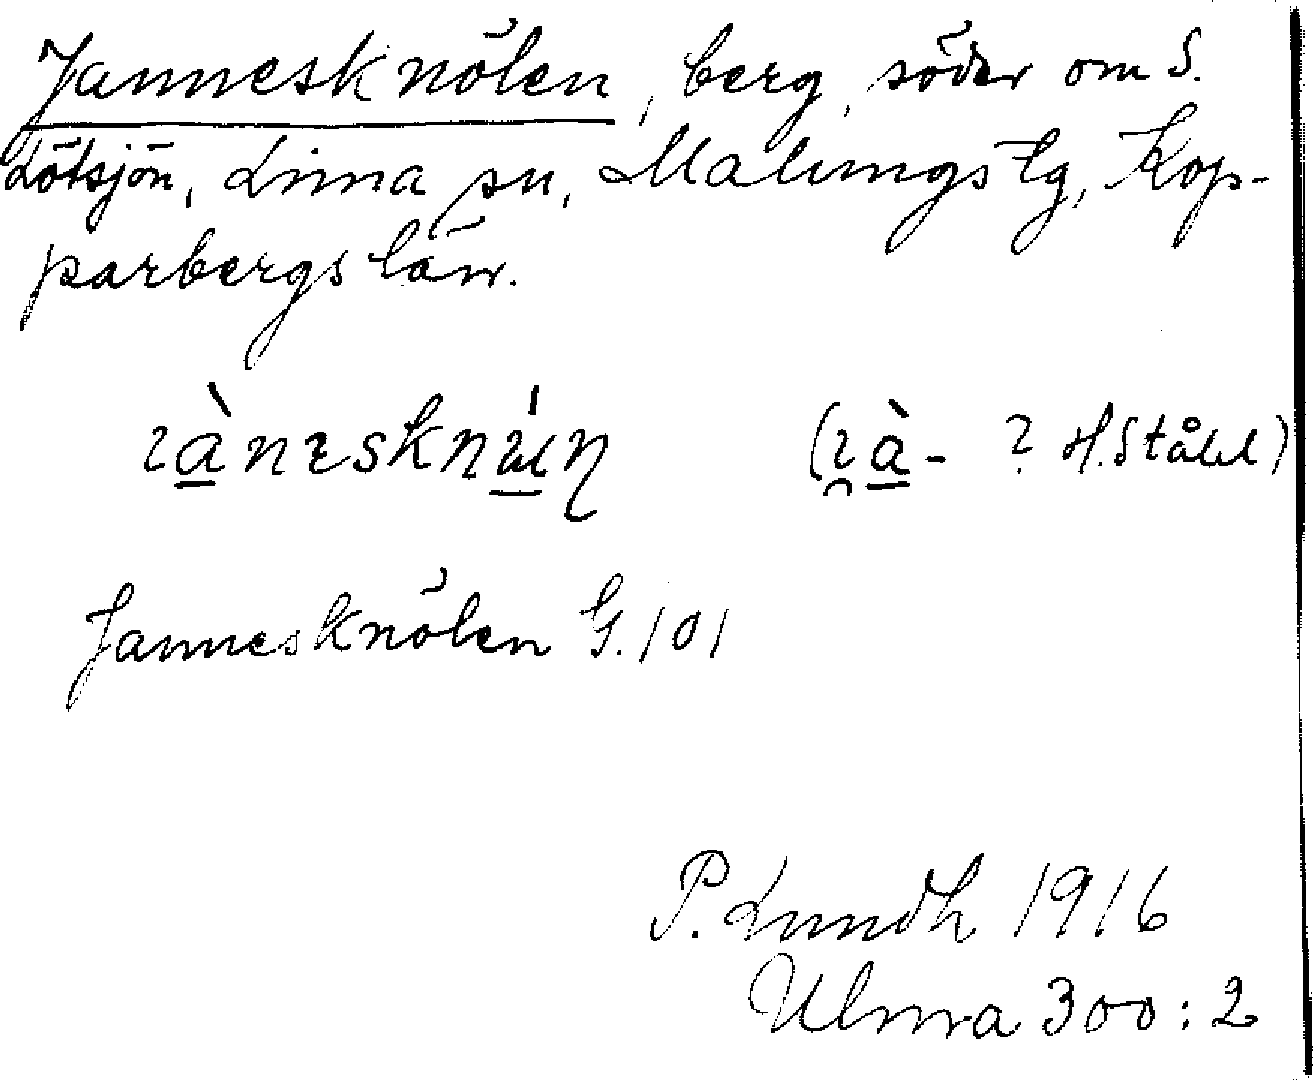 Jannesknölen, berg, söder om S.
Lötsjön, Lima sn, Malungs tg, Kop-
parbergs län.
(? H. Ståhl)
Jannesknölen G. 101
P. Lundh 1916
Ulma 300:2